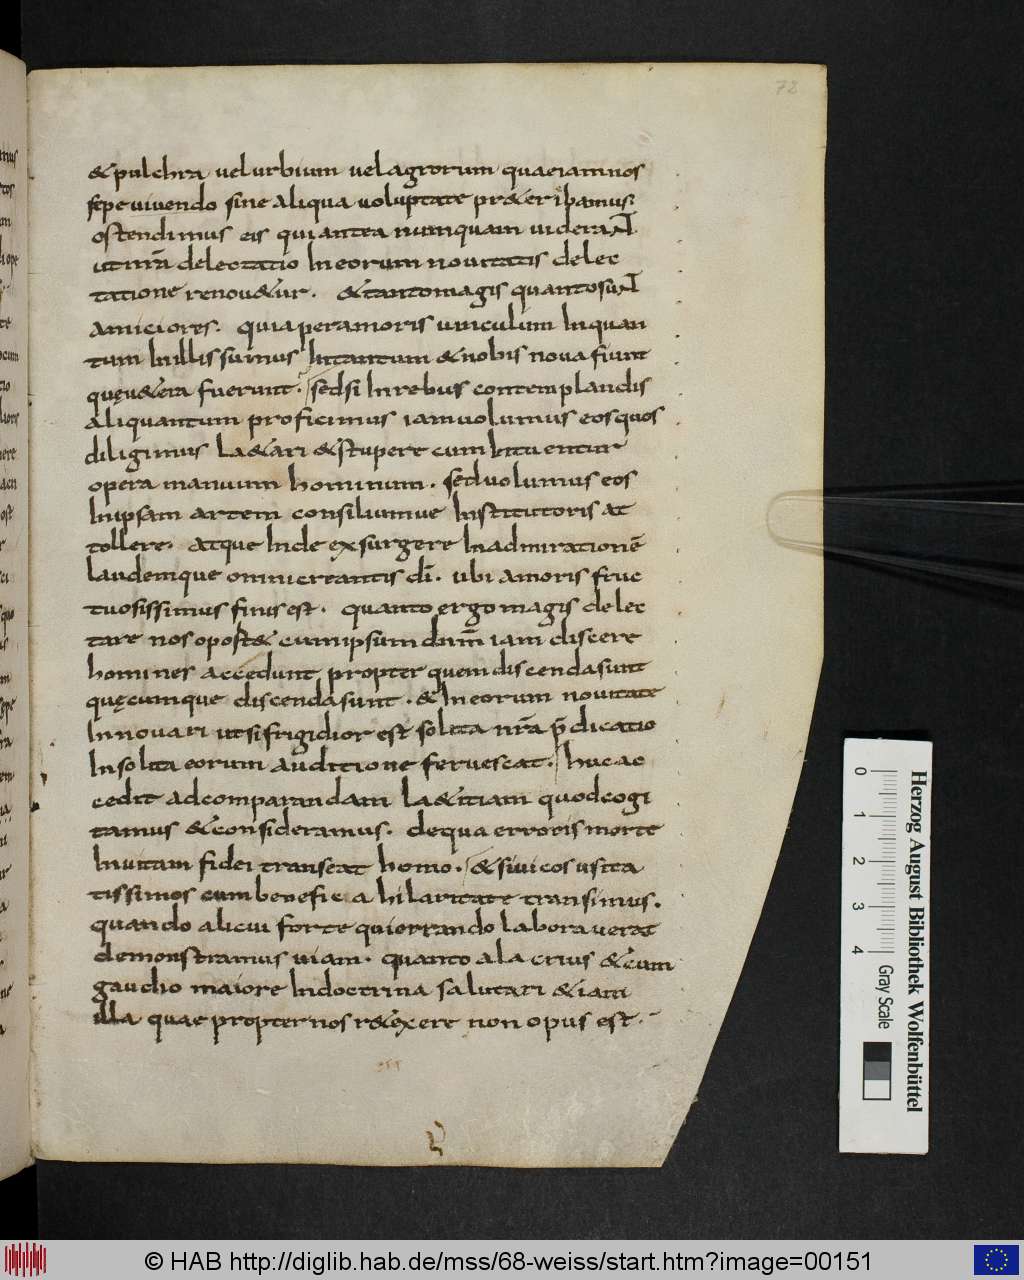 72
&pulchra vel urbium vel agrorum quaeiamnos
sepe vivendo sine aliqua voluptate pr&eribamus.
ostendimus eis qui antea numquam viderant.
ut nr̄a delectatio In eorum novitatis delec
tatione renov&ur. &tanto magis quanto sunt
amiciores. quia per amoris vinculum In quan
tum In illis sumus In tantum & nobis nova fiunt
quę v&era fuerunt. sed si In rebus contemplandis
aliquantum proficimus iam volumus eos quos
diligimus la&ari & stupere cum Intuentur
opera manuum hominum. sed volumus eos
In ipsam artem consiliumve Institutoris at
tollere. atque Inde exsurgere In admirationē
laudemque omnicreantis dī. ubi amoris fruc
tuosissimus finis est. quanto ergo magis delec
tare nos oport& cum ipsum dnm̄ iam discere
homines accedunt propter quem discenda sunt
quęcumque discenda sunt. & In eorum novitate
Innovari ut si frigidior est solita nr̄a p̄dicatio
Insolita eorum auditione fervescat. huc ac
cedit ad comparandam la&itiam quod cogi
tamus & consideramus. de qua erroris morte
In vitam fidei transeat homo. & si vicos usita
tissimos cum benefica hilaritate transimus.
quando alicui forte qui errando laboraverat
demonstramus viam. quanto alacrius & cum
gaudio maiore In doctrina salutari & iam
illa quae propter nos r&exere non opus est.
Herzog August Bibliothek Wolfenbüttel
0 1 2 3 4
Gray Scale
© HAB http://diglib.hab.de/mss/68-weiss/start.htm?image=00151